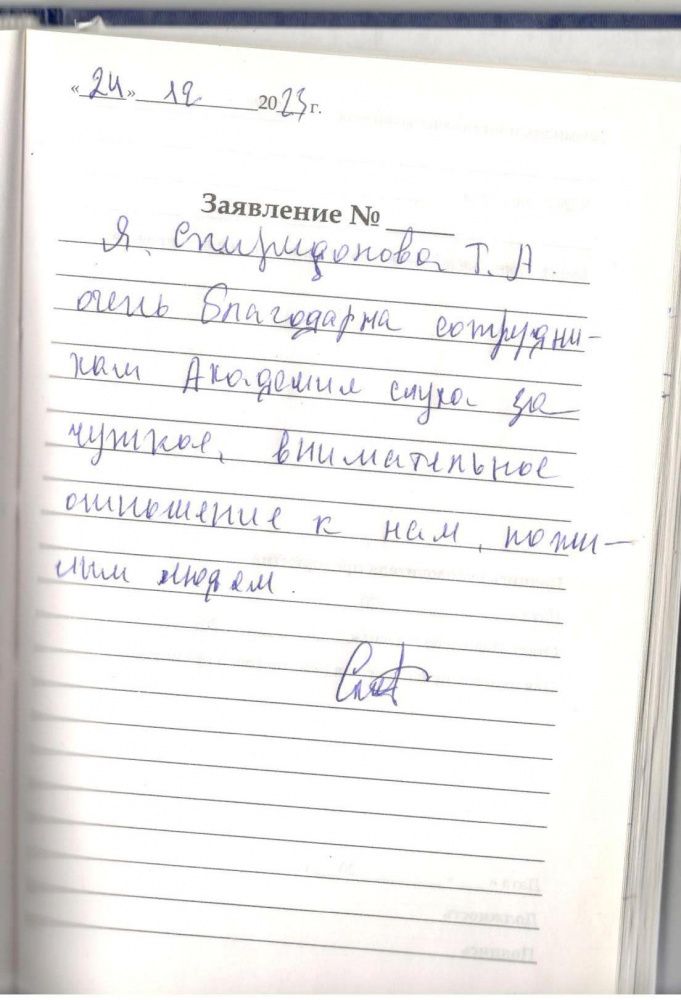 «24» 12 2023 г.
Заявление № ____
Я, Спиридонова Т. А.
очень благодарна сотрудни-
кам Академии слуха за
чуткое, внимательное
отношение к нам, пожи-
лым людям.